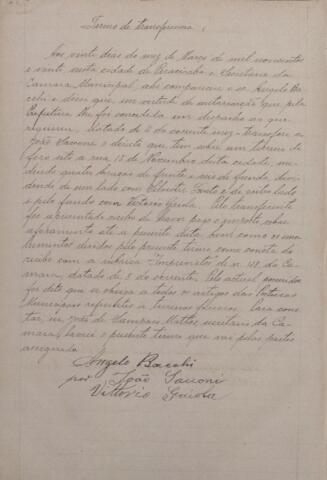 Termo de transferencia.
Aos vinte dias do mez de Março de mil novecentos
e vinte nesta cidade de Piracicaba e Secretaria da
Camara Municipal, ahi compareceu o sr. Angelo Bac
chi e disse que, em virtude da autorisação que pela
Prefeitura lhe foi concedida em despacho ao que
requereu, datado de 2 do corrente mez, transfere a
João Sacconi o direito que tem sobre um terreno de
fóro sito a rua 13 de Novembro desta cidade, me
dindo quatro braças de frente e seis de fundo, divi
dindo de um lado com e de outro lado
e pelo fundo com Victorio. Pelo transferente
foi apresentado recibo de haver pago o imposto sobre
aforamento até a presente data, bem como os emo
lumentos devidos pelo presente termo, como consta do
recibo com a rubrica "Imprevistos" de n. 148, da Ca
mara, datado de 8 do corrente. Pelo actual
foi dito que se obriga a todos os artigos das Posturas
Municipaes referentes a terrenos foreiros. Para cons
tar, eu João de Sampaio Mattos, secretario da Ca
mara, lavrei o presente termo que vai pelas partes
assignado.
Angelo Bacchi
por João Sacconi
Vittorio